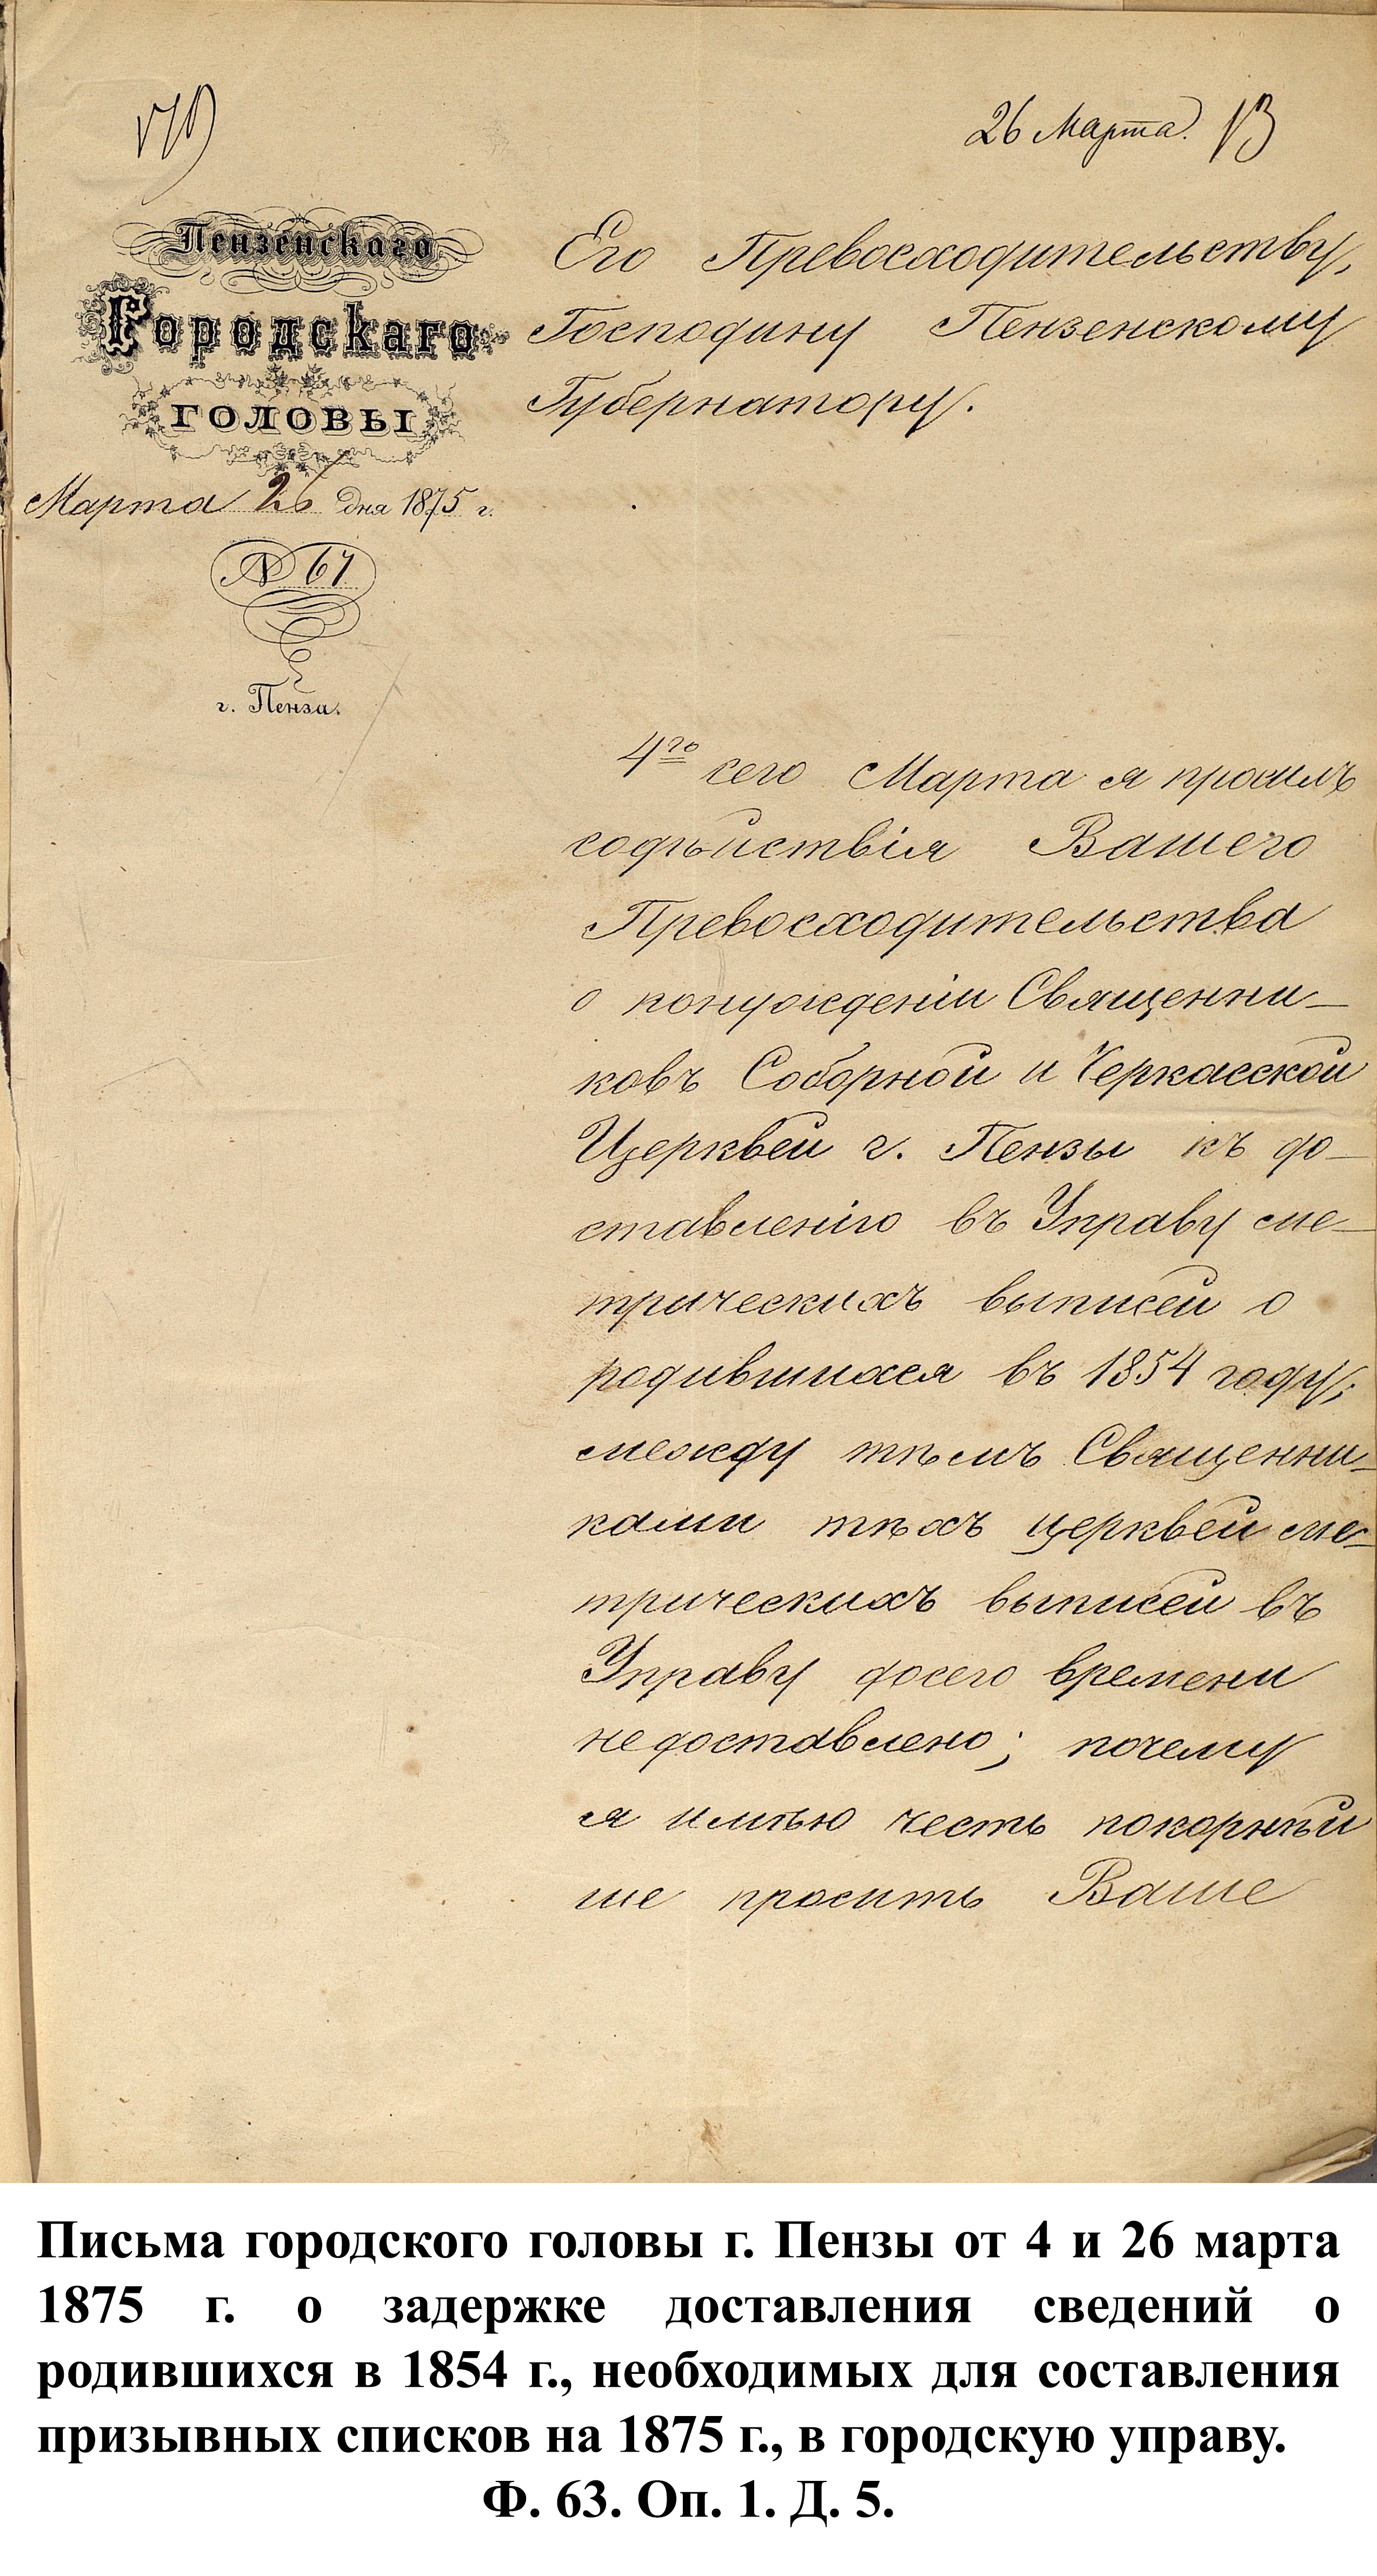 26 Марта.
Пензенскаго
Городскаго
ГОЛОВЫ
Марта 26 дня 1875 г.
№ 67
г. Пенза.
Его Превосходительству,
Господину Пензенскому
Губернатору.
4го сего Марта я просилъ
содѣйствія Вашего
Превосходительства
о понужденіи Священни-
ковъ Соборной и Черкасской
Церквей г. Пензы къ до-
ставленію въ Управу ме-
трическихъ выписей о
родившихся въ 1854 году;
между тѣмъ Священни-
ками тѣхъ церквей ме-
трическихъ выписей въ
Управу досего времени
не доставлено; почему
я имѣю честь покорнѣй
ше просить Ваше
Письма городского головы г. Пензы от 4 и 26 марта
1875 г. о задержке доставления сведений о
родившихся в 1854 г., необходимых для составления
призывных списков на 1875 г., в городскую управу.
Ф. 63. Оп. 1. Д. 5.